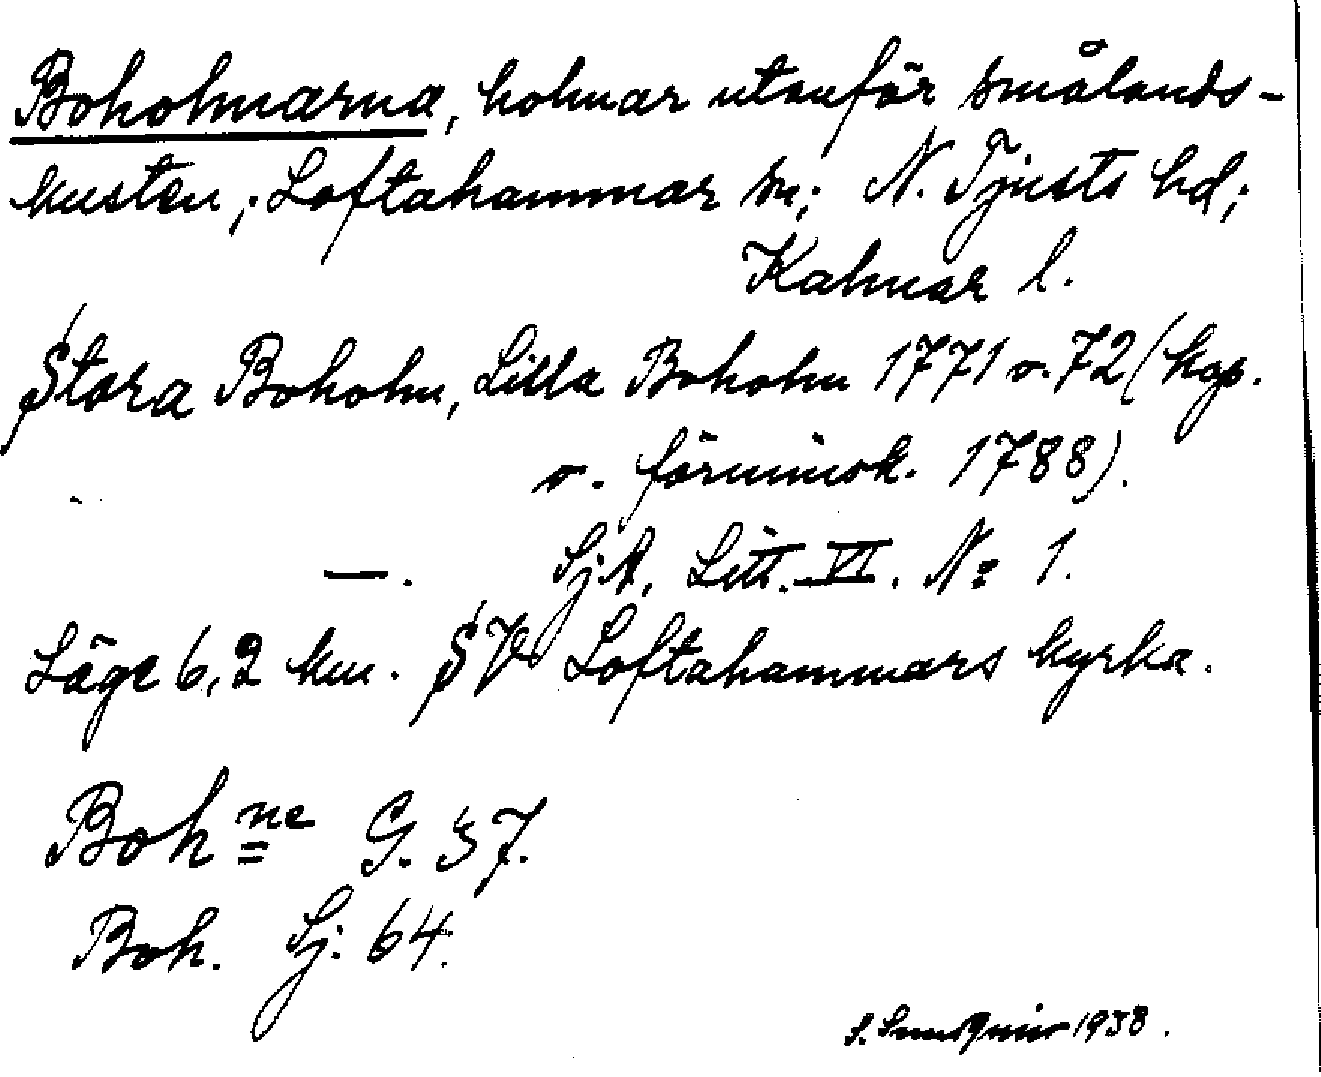 Boholmarna, holmar utanför smålands-
kusten; Loftahammar sn; N. Tjusts hd;
Kalmar l.
Stora Boholm, Lilla Boholm 1771 o. 72 (kop.
o. förminsk. 1788).
—. SjA, Litt. VI. No 1.
Läge 6,2 km. SV Loftahammars kyrka.
Boh ne G. 37.
Boh. Sj. 64.
S. 1938.